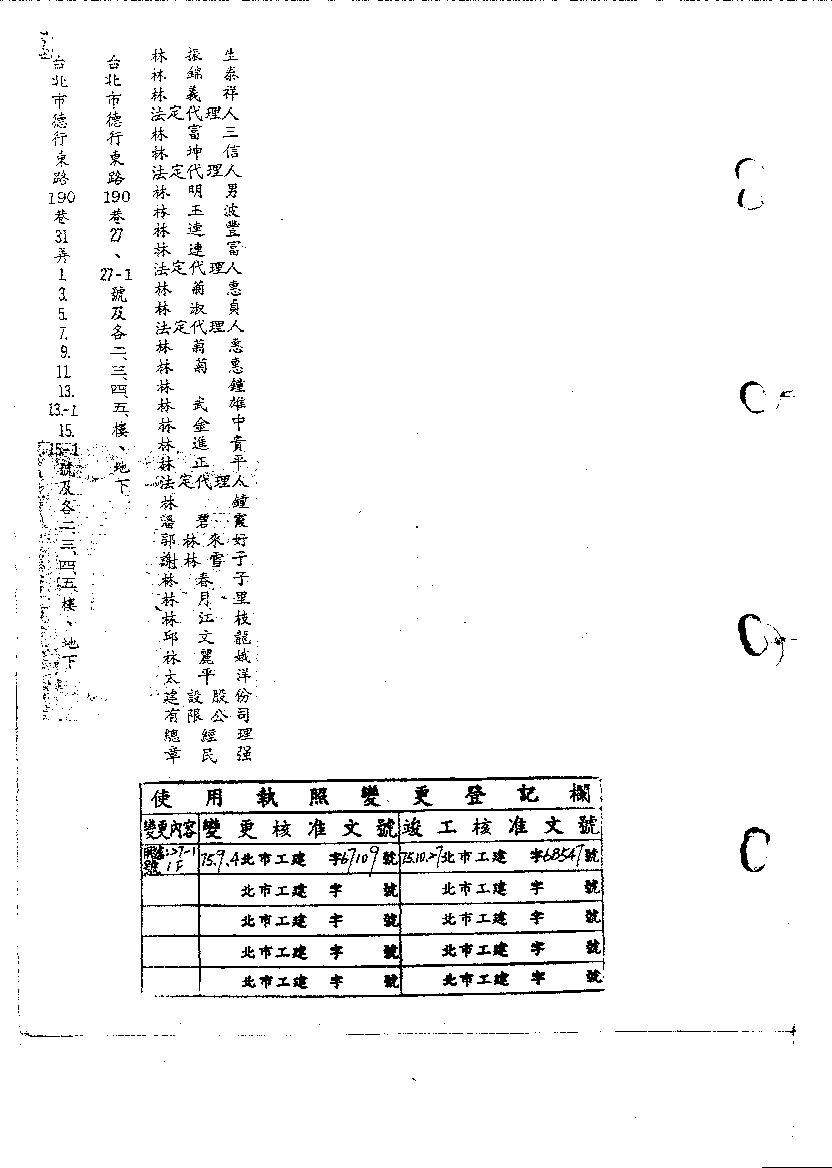 林振生
林錦泰
林義祥
法定代理人
林富三
林坤信
法定代理人
林明男
林玉波
林連豐
林連富
法定代理人
林菊惠
林淑貞
法定代理人
林菊惠
林菊惠
林鐘
林武雄
林金中
林進貴
林正平
法定代理人
林鐘
潘碧霞
郭林來好
謝林雪子
林春子
林月里
林江枝
邱文龍
林麗娥
太平洋
建設股份
有限公司
總經理
章民强
台北市德行東路190巷27、27-1號及各二、三、四、五、樓、地下
台北市德行東路190巷31弄1.3.5.7.9.11.13.13.-1.15.15-1號及各二、三、四、五樓、地下
使用執照變更登記欄
變更內容 變更核准文號 竣工核准文號
27-1號1F 75.9.4北市工建字67109號 75.10.27北市工建字68547號
北市工建 字 號 北市工建 字 號
北市工建 字 號 北市工建 字 號
北市工建 字 號 北市工建 字 號
北市工建 字 號 北市工建 字 號